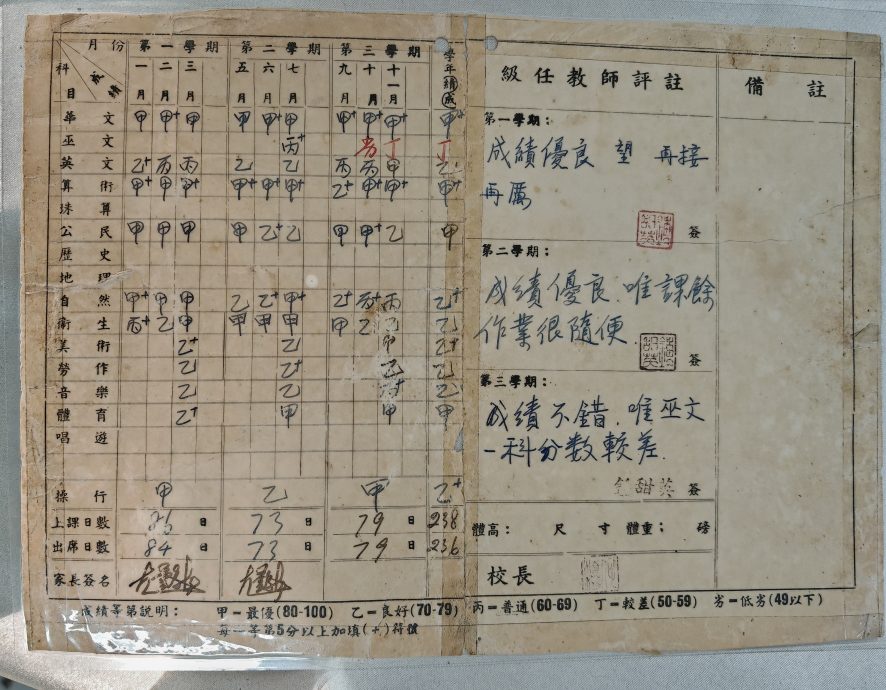 月 份 第 一 學 期 第 二 學 期 第 三 學 期 學年成績
科 目 成 績 一月 二月 三月 五月 六月 七月 九月 十月 十一月
華 文 甲 甲+ 甲 甲 甲 甲 甲+ 甲+ 甲+ 甲+
巫 文 丙+ 劣 丁 丁
英 文 乙+ 丙 丙 乙 乙 丙 丙 甲 乙
算 術 甲+ 甲 甲+ 甲+ 甲+ 甲+ 乙+ 甲+ 甲+ 甲+
珠 算
公 民 甲 甲 甲 甲 乙+ 乙 甲 甲+ 乙 甲
歷 史
地 理
自 然 甲+ 甲 甲 乙 乙+ 甲+ 乙+ 丙 乙+
衛 生 丙+ 乙 甲 甲 甲 甲 甲 乙 乙
美 術 乙+ 乙 甲 乙+
勞 作 乙 乙+ 乙 乙
音 樂 乙 乙 乙
體 育 乙+ 甲 甲 甲
唱 遊
操 行 甲 乙 甲 乙+
上課日數 86 日 73 日 79 日 238
出席日數 84 日 73 日 79 日 236
家長簽名
級任教師評註
第一學期:
成績優良 望 再接
再厲
簽
第二學期:
成績優良.唯課餘
作業很隨便
簽
第三學期:
成績不錯.唯巫文
一科分数較差.
甜英 簽
體高: 尺 寸 體重: 磅
校長
備 註
成績等第說明: 甲-最優(80-100) 乙-良好(70-79) 丙-普通(60-69) 丁-較差(50-59) 劣-低劣(49以下)
每一等第5分以上加填(+)符號